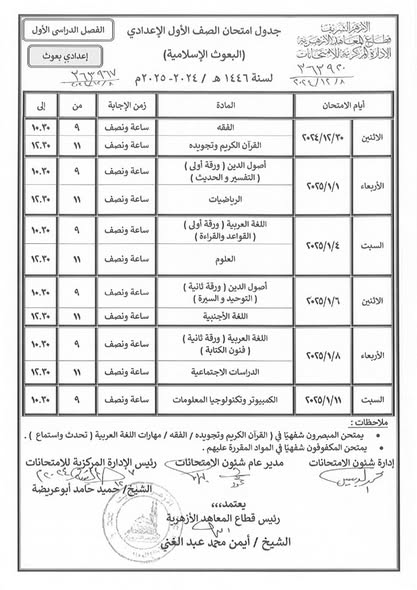 الأزهر الشريف
قطاع المعاهد الأزهرية
الإدارة المركزية للامتحانات
٣٦٣٩٢٠
٢٠٢٤/١٢/٨
جدول امتحان الصف الأول الإعدادي
(البعوث الإسلامية)
لسنة ١٤٤٦ هـ / ٢٠٢٤- ٢٠٢٥م
الفصل الدراسى الأول
إعدادي بعوث
أيام الامتحان المادة زمن الإجابة من إلى
الاثنين ٢٠٢٤/١٢/٣٠ الفقه ساعة ونصف ٩ ١٠.٣٠
القرآن الكريم وتجويده ساعة ونصف ١١ ١٢.٣٠
الأربعاء ٢٠٢٥/١/١ أصول الدين ( ورقة أولى ) ساعة ونصف ٩ ١٠.٣٠
( التفسير و الحديث )
الرياضيات ساعة ونصف ١١ ١٢.٣٠
السبت ٢٠٢٥/١/٤ اللغة العربية ( ورقة أولى ) ساعة ونصف ٩ ١٠.٣٠
( القواعد والقراءة )
العلوم ساعة ونصف ١١ ١٢.٣٠
الاثنين ٢٠٢٥/١/٦ أصول الدين ( ورقة ثانية ) ساعة ونصف ٩ ١٠.٣٠
( التوحيد و السيرة )
اللغة الأجنبية ساعة ونصف ١١ ١٢.٣٠
الأربعاء ٢٠٢٥/١/٨ اللغة العربية ( ورقة ثانية ) ساعة ونصف ٩ ١٠.٣٠
( فنون الكتابة )
الدراسات الاجتماعية ساعة ونصف ١١ ١٢.٣٠
السبت ٢٠٢٥/١/١١ الكمبيوتر وتكنولوجيا المعلومات ساعة ونصف ٩ ١٠.٣٠
ملاحظات :
• يمتحن المبصرون شفهيًا في ( القرآن الكريم وتجويده / الفقه / مهارات اللغة العربية ( تحدث واستماع ) .
• يمتحن المكفوفون شفهيًا في المواد المقررة عليهم .
إدارة شئون الامتحانات مدير عام شئون الامتحانات رئيس الإدارة المركزية للامتحانات
الشيخ/ حميد حامد أبوعريضة
يعتمد،،،،
رئيس قطاع المعاهد الأزهرية
الشيخ / أيمن محمد عبد الغني